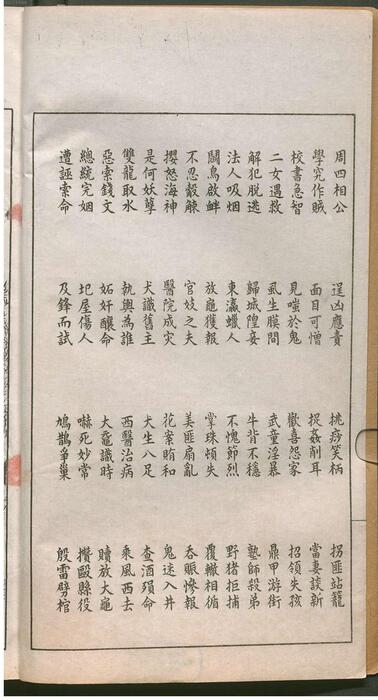 周四相公 逞凶應責 挑痧笑柄 拐匪站籠
學究作賊 面目可憎 捉姦削耳 當妻談新
校書急智 見嗤於鬼 歡喜怨家 招領失孩
二女遇救 虱生膜間 武童淫暴 鼎甲游街
解犯脫逃 歸城隍妾 牛背不穩 塾師殺弟
法人吸烟 東瀛蠟人 不愧節烈 野猪拒捕
鬭鳥啟衅 放龜獲報 掌珠頓失 覆轍相循
不忍觳觫 官妓之夫 美匪扇亂 吞賑慘報
攖怒海神 醫院成灾 花案賄和 鬼迷入井
是何妖孽 犬識舊主 犬生八足 查酒殞命
雙龍取水 執輿為誰 西醫治病 乘風西去
惡索錢文 妬奸釀命 大黿識時 贖放大龜
總統完姻 圯屋傷人 嚇死妙常 攢毆縣役
遭誣索命 及鋒而試 鳩鵲爭巢 殷雷劈棺